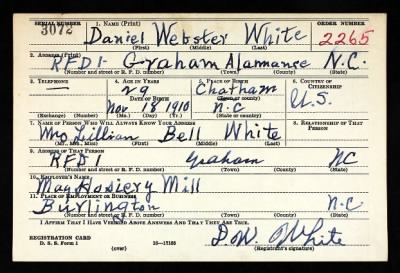 SERIAL NUMBER 1. NAME (Print) ORDER NUMBER
3072 Daniel Webster White 2265
(First) (Middle) (Last)
2. ADDRESS (Print)
RFD 1- Graham Alamance N.C.
(Number and street or R. F. D. number) (Town) (County) (State)
3. TELEPHONE 4. AGE IN YEARS 5. PLACE OF BIRTH 6. COUNTRY OF CITIZENSHIP
— 29 Chatham
DATE OF BIRTH (Town or county) U.S.
Nov 18 1910 N.C
(Exchange) (Number) (Mo.) (Day) (Yr.) (State or country)
7. NAME OF PERSON WHO WILL ALWAYS KNOW YOUR ADDRESS 8. RELATIONSHIP OF THAT PERSON
Mrs Lillian Bell White
(Mr., Mrs., Miss) (First) (Middle) (Last)
9. ADDRESS OF THAT PERSON
RFD 1 Graham NC
(Number and street or R. F. D. number) (Town) (County) (State)
10. EMPLOYER'S NAME
May Hosiery Mill
11. PLACE OF EMPLOYMENT OR BUSINESS
Burlington N.C
(Number and street or R. F. D. number) (Town) (County) (State)
I AFFIRM THAT I HAVE VERIFIED ABOVE ANSWERS AND THAT THEY ARE TRUE.
REGISTRATION CARD
D. S. S. Form 1 (over) 16—17105 (Registrant's signature)